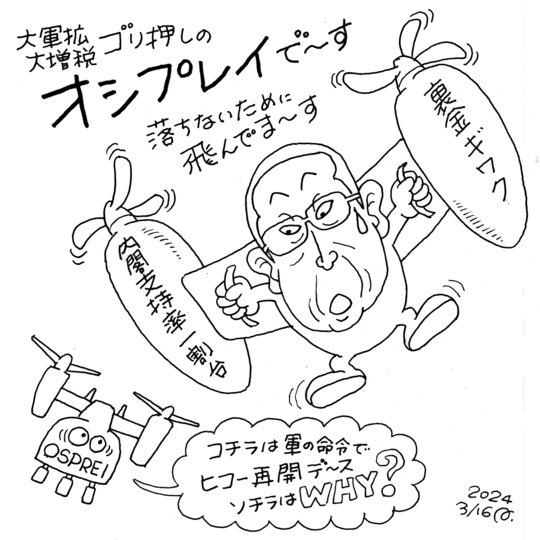 大軍拡
大増税 ゴリ押しの
オシプレイで〜す
落ちないために
飛んでま〜す
裏金ギワク
内閣支持率一割台
OSPREI
コチラは軍の命令で
ヒコー再開デース
ソチラはWHY?
2024
3/16